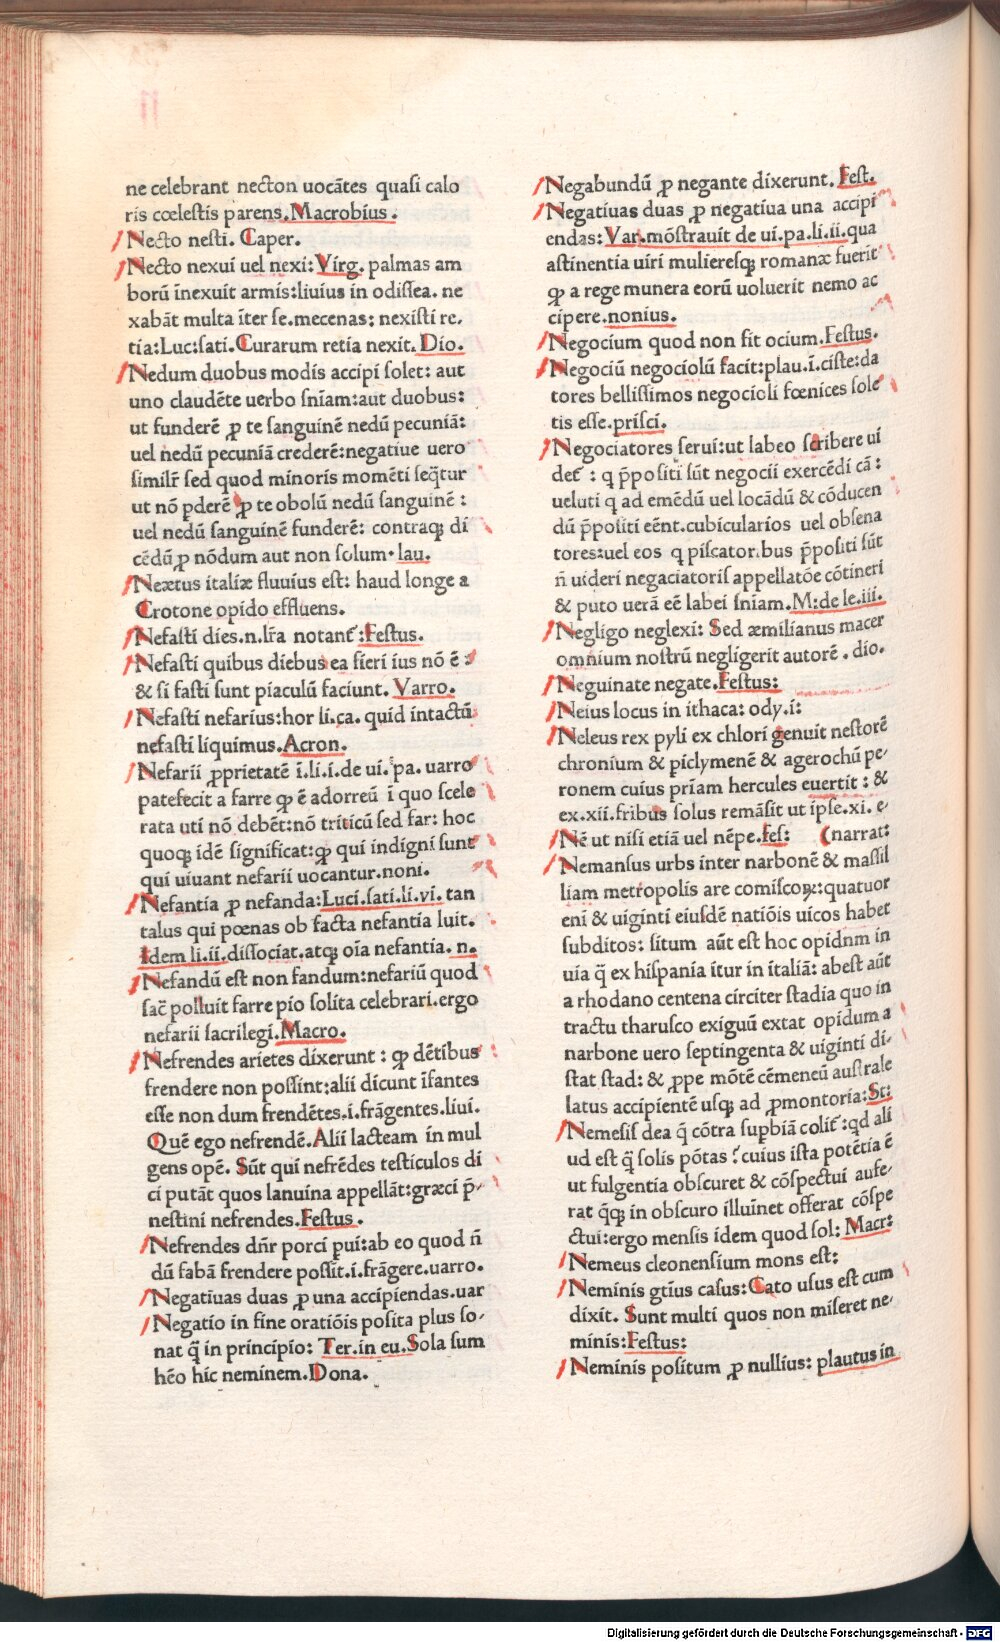 ne celebrant necton uocātes quasi calo
ris cœlestis parens.Macrobius.
Necto nesti. Caper.
Necto nexui uel nexi:Virg. palmas am
borū inexuit armis:liuius in odissea. ne
xabāt multa īter se.mecenas: nexisti re,
tia:Luc:sati.Curarum retia nexit.Dio.
Nedum duobus modis accipi solet: aut
uno claudēte uerbo sniam:aut duobus:
ut funderē ꝓ te sanguinē nedū pecuniā:
uel nedū pecuniā crederē:negatiue uero
similr̄ sed quod minoris momēti seq̄tur
ut nō ꝑderē ꝓ te obolū nedū sanguinē :
uel nedū sanguinē funderē: contraqꝫ di
cēdū ꝓ nōdum aut non solum· lau.
Neætus italiæ fluuius est: haud longe a
Crotone opido effluens.
Nefasti dies.n.lr̄a notant᷑ :Festus.
Nefasti quibus diebus ea fieri ius nō ē :
& si fasti sunt piaculū faciunt. Varro.
Nefasti nefarius:hor li.ca. quid intactū
nefasti liquimus.Acron.
Nefarii ꝓprietatē ī.li.i.de ui. pa. uarro
patefecit a farre qꝫ ē adorreū ī quo scele
rata uti nō debēt:nō triticū sed far: hoc
quoqꝫ idē significat:qꝫ qui indigni sunt
qui uiuant nefarii uocantur.noni.
Nefantia ꝓ nefanda:Luci.sati.li.vi. tan
talus qui pœnas ob facta nefantia luit.
Idem li.ii.dissociat.atqꝫ oīa nefantia. n.
Nefandū est non fandum:nefariū quod
sac̄ polluit farre pio solita celebrari.ergo
nefarii sacrilegi.Macro.
Nefrendes arietes dixerunt : qꝫ dētibus
frendere non possint:alii dicunt īfantes
esse non dum frendētes.i.frāgentes.liui.
Quē ego nefrendē.Alii lacteam in mul
gens opē. Sūt qui nefrēdes testiculos di
ci putāt quos lanuina appellāt:græci p̄-
nestini nefrendes.Festus.
Nefrendes dn̄r porci pui:ab eo quod n̄
dū fabā frendere possīt.i.frāgere.uarro.
Negatiuas duas ꝓ una accipiendas.uar
Negatio in fine oratiōis posita plus so-
nat q̄ in principio: Ter.in eu.Sola sum
hēo hic neminem.Dona.
Negabundū ꝓ negante dixerunt.Fest.
Negatiuas duas ꝓ negatiua una accipi
endas:Var.mōstrauit de ui.pa.li.ii.qua
astinentia uiri mulieresqꝫ romanæ fuerit
qꝫ a rege munera eorū uoluerit nemo ac
cipere.nonius.
Negocium quod non sit ocium.Festus.
Negociū negociolū facit:plau.ī.ciste:da
tores bellissimos negocioli fœnices sole
tis esse.prisci.
Negociatores serui:ut labeo scribere ui
det᷑ : q p̄positi sūt negocii exercēdi cā :
ueluti q ad emēdū uel locādū & cōducen
dū p̄positi eēnt.cubicularios uel obsena
tores:uel eos q piscator.bus p̄positi sūt
n̄ uideri negaciatoris appellatōe cōtineri
& puto uerā eē labei sniam.M:de le.iii.
Negligo neglexi: Sed æmilianus macer
omnium nostrū negligerit autorē . dio.
Neguinate negate.Festus:
Neius locus in ithaca: ody.i:
Neleus rex pyli ex chlori genuit nestorē
chronium & piclymenē & agerochū pe-
ronem cuius priam hercules euertit : &
ex.xii.fribus solus remāsit ut ipse.xi. e-
Nē ut nisi etiā uel nēpe.fes: (narrat:
Nemansus urbs inter narbonē & massil
liam metropolis are comiscoꝝ:quatuor
eni & uiginti eiusdē natiōis uicos habet
subditos: situm aūt est hoc opidnm in
uia q̄ ex hispania itur in italiā: abest aūt
a rhodano centena circiter stadia quo in
tractu tharusco exiguū extat opidum a
narbone uero septingenta & uiginti di-
stat stad: & ꝓpe mōtē cēmeneū australe
latus accipientē usqꝫ ad ꝓmontoria:St:
Nemesis dea q̄ cōtra supbiā colit᷑:qd ali
ud est q̄ solis pōtas :cuius ista potētia ē
ut fulgentia obscuret & cōspectui aufe-
rat q̄qꝫ in obscuro illuinet offerat cōspe
ctui:ergo mensis idem quod sol: Macr:
Nemeus cleonensium mons est:
Neminis gtīus casus:Cato usus est cum
dixit. Sunt multi quos non miseret ne-
minis:Festus:
Neminis positum ꝓ nullius: plautus in
Digitalisierung gefördert durch die Deutsche Forschungsgemeinschaft - DFG